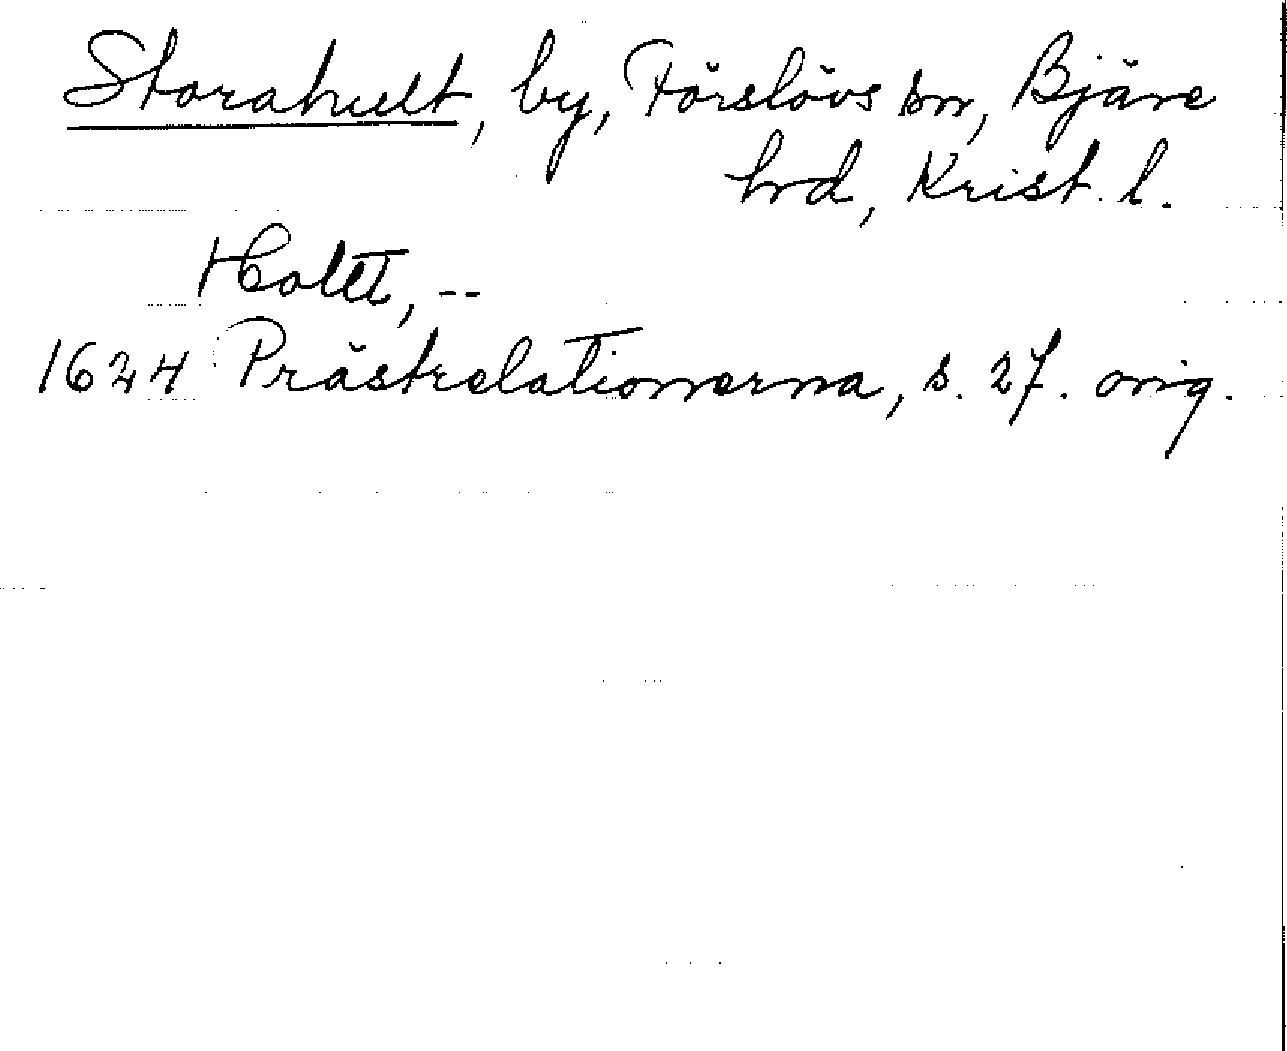 Storahult, by, Förslövs sn, Bjäre
hrd, Krist. l.
Holtt, --
1624 Prästrelationerna, s. 27. orig.